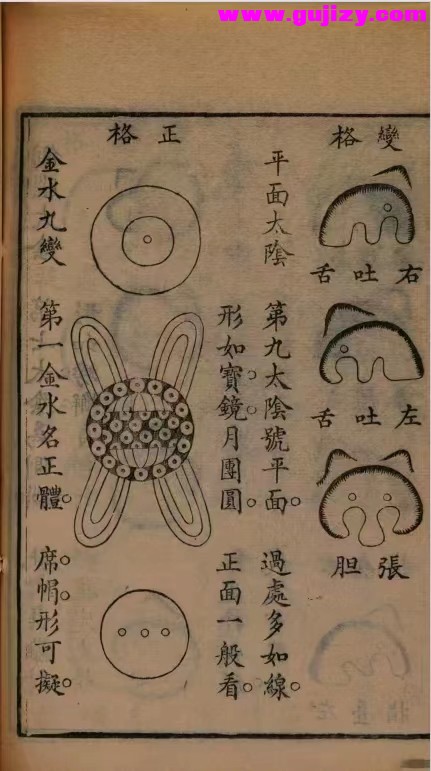 www.gujizy.com
變格
右吐舌
左吐舌
張胆
平面太陰
第九太陰號平面。過處多如線。
形如寶鏡月團圓。正面一般看。
正格
金水九變
第一金水名正體。席帽形可擬。